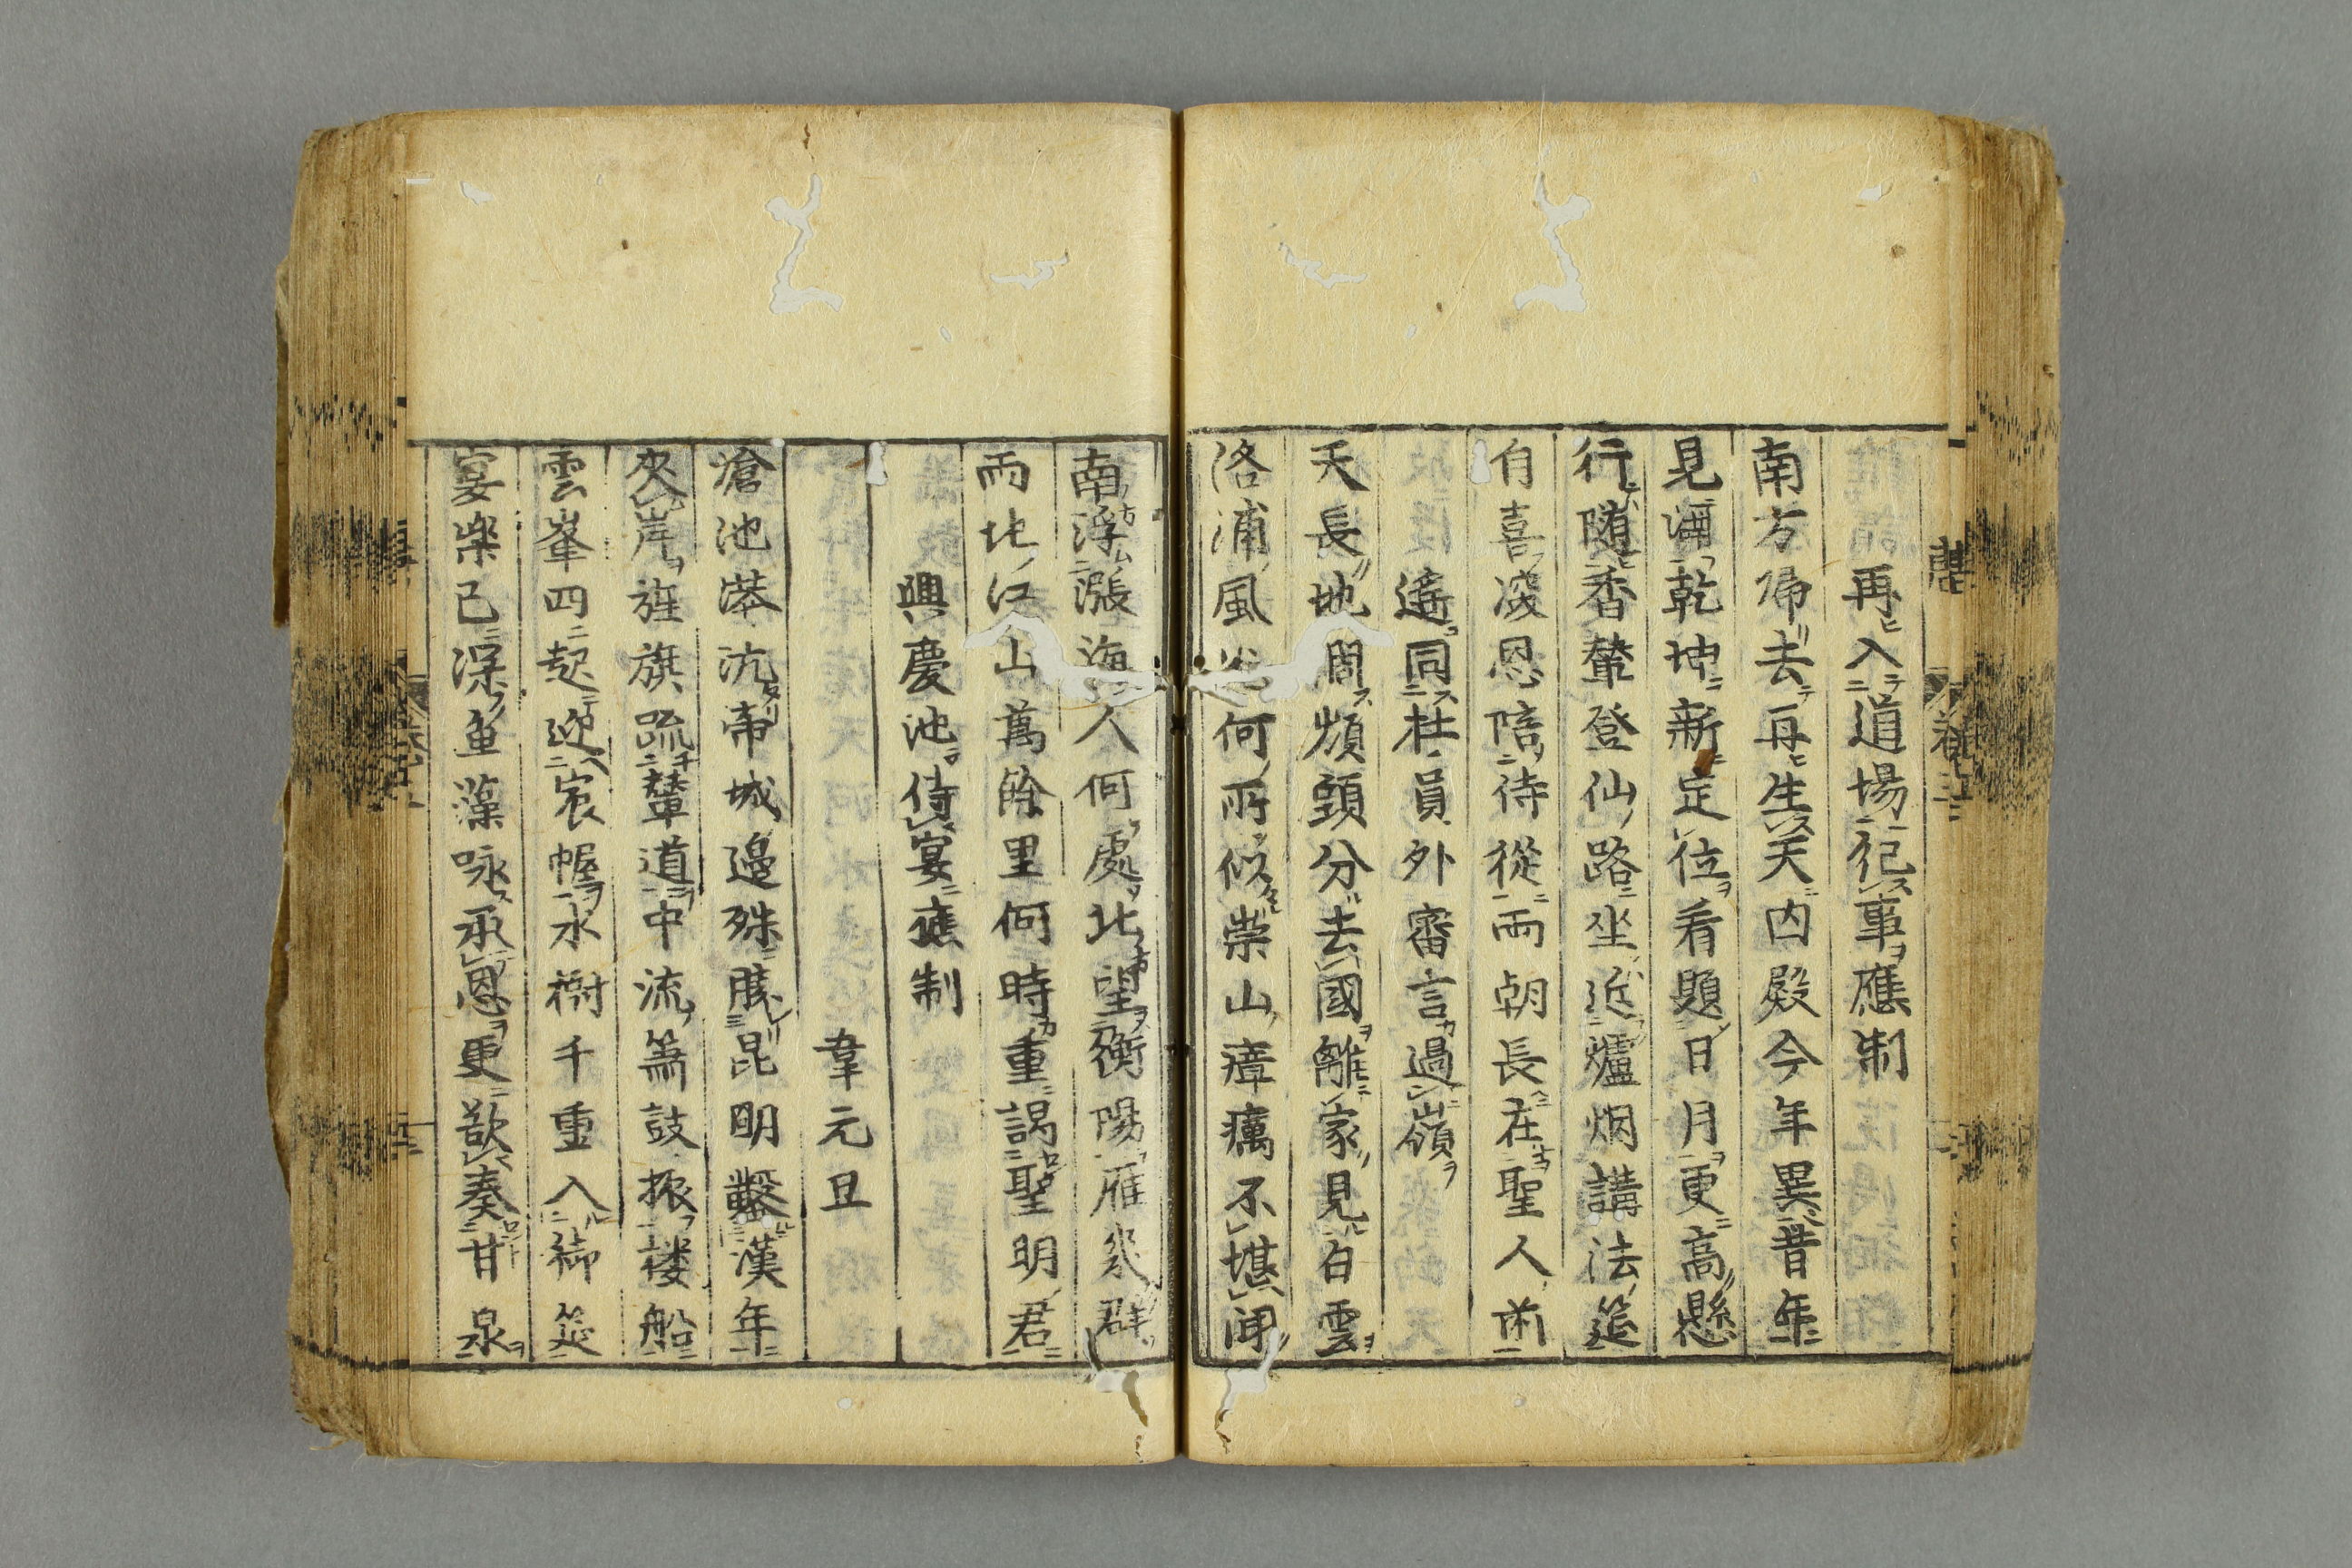 再入道場紀事應制
南方帰去再生天内殿今年異昔年
見闢乾坤新定位看題日月更高懸
行随香輦登仙路坐近爐烟講法筵
自喜深恩陪侍從兩朝長在聖人前
遙同杜員外審言過嶺
天長地闊嶺頭分去國離家見白雲
洛浦風光何所似崇山瘴癘不堪聞
南浮漲海人何處北望衡陽雁幾群
兩地江山萬餘里何時重謁聖明君
興慶池侍宴應制
韋元旦
滄池漭沆帝城邊殊勝昆明鑿漢年
夾岸旌旗疏輦道中流簫鼓振樓船
雲峯四起迎宸幄水樹千重入御筵
宴樂已深魚藻咏承恩更欲奏甘泉